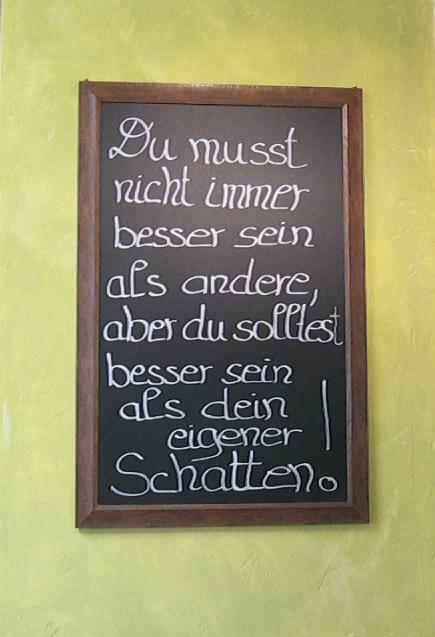 Du musst
nicht immer
besser sein
als andere,
aber du solltest
besser sein
als dein
eigener
Schatten!